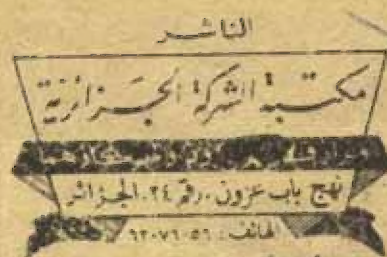 الناشر
مكتبة الشركة الجزائرية
نهج باب عزون . رقم ٢٤ . الجزائر
الهاتف : ٥٦-٠٧-٦٢